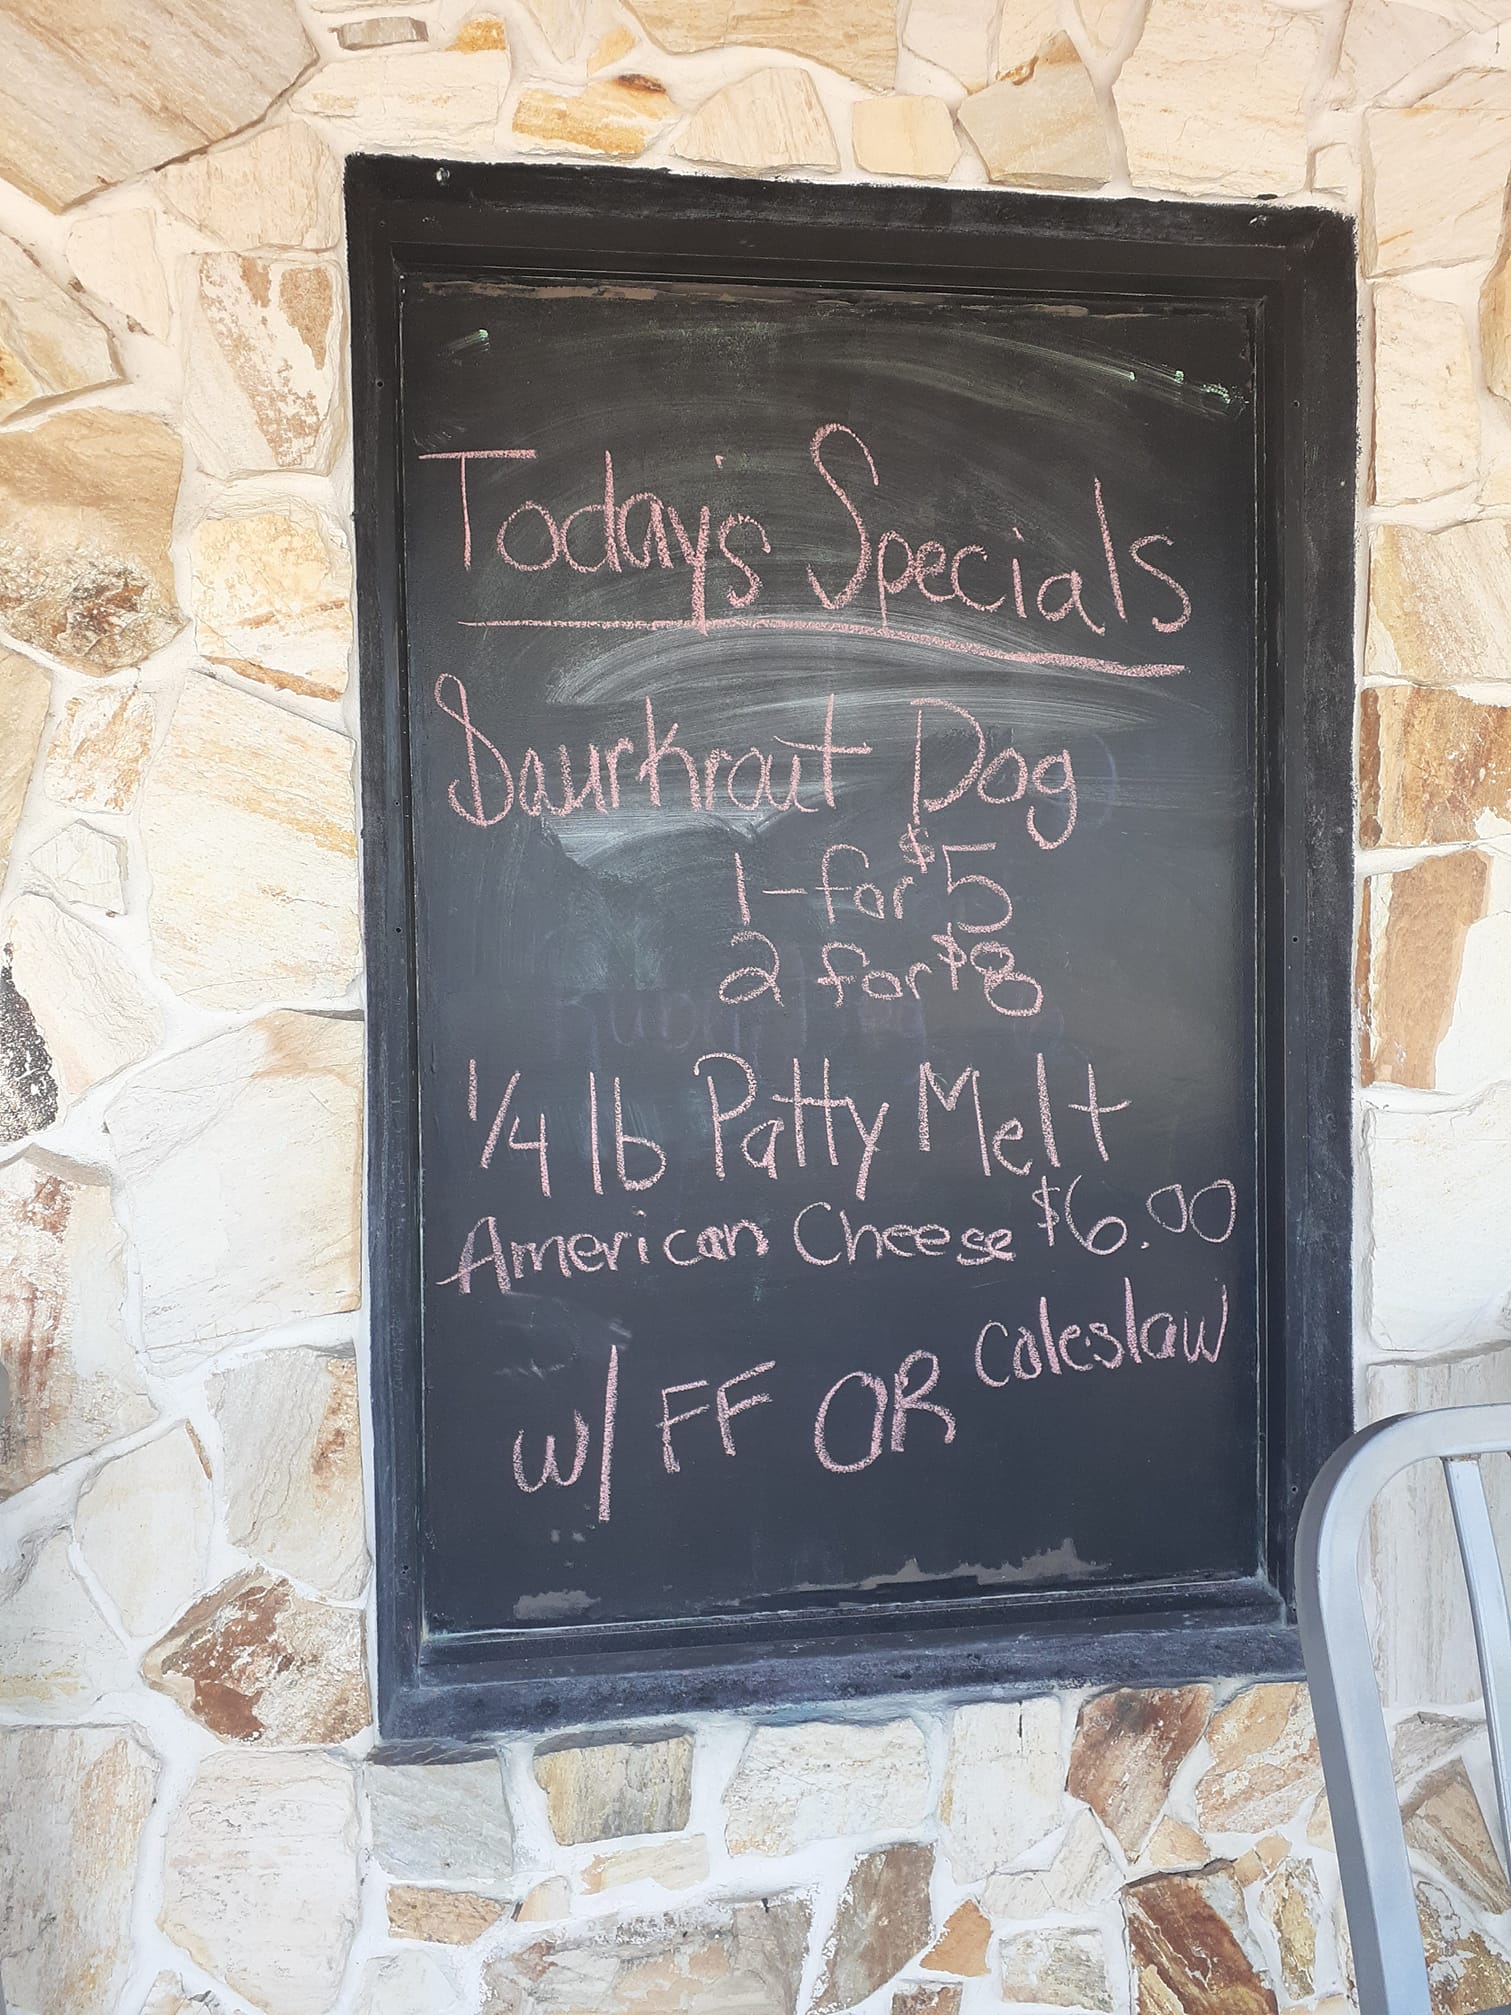 Today's Specials
Saurkraut Dog
1-for $5
2 for $8
1/4 lb Patty Melt
American Cheese $6.00
w/ FF OR coleslaw